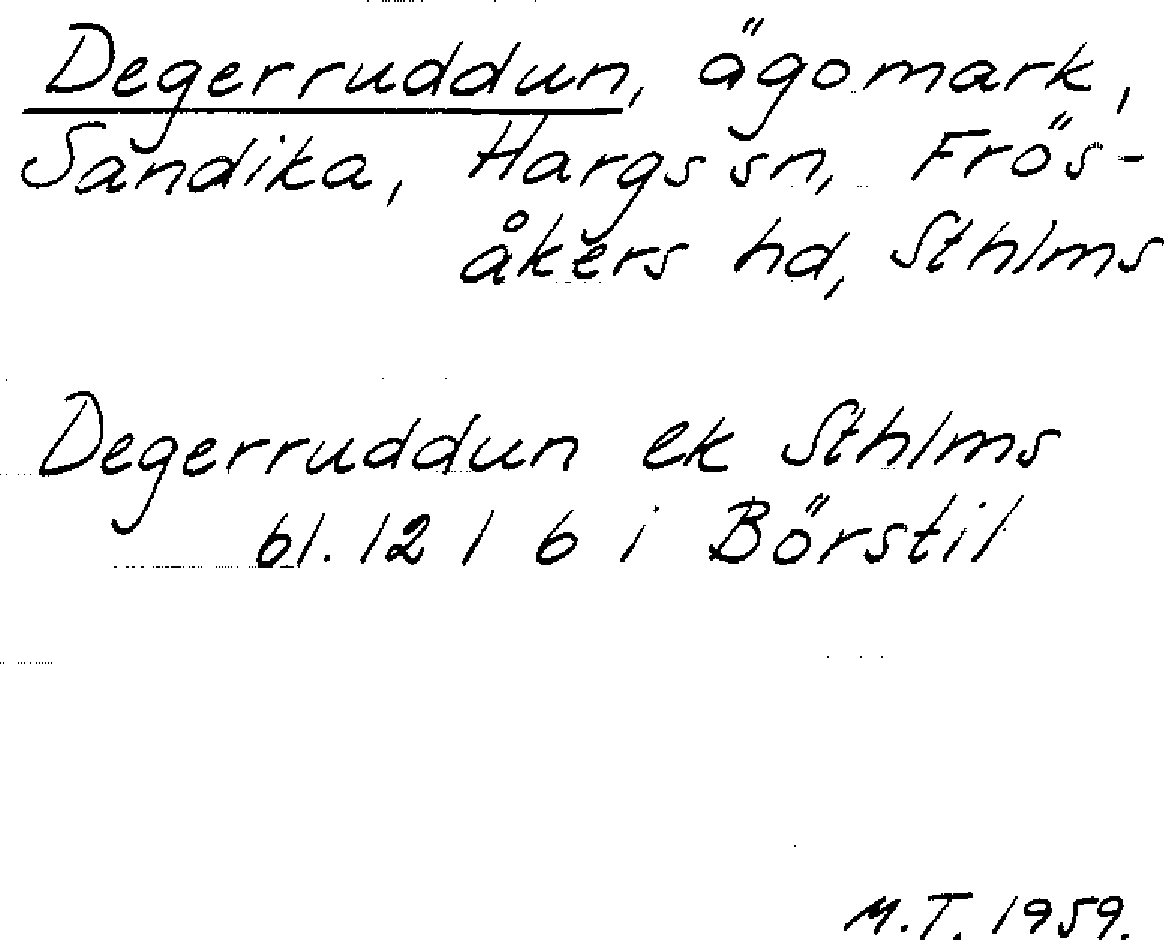 Degerruddun, ägomark,
Sandika, Hargs sn, Frös-
åkers hd, Sthlms
Degerruddun ek Sthlms
bl. 12 l 6 i Börstil
M.T. 1959.